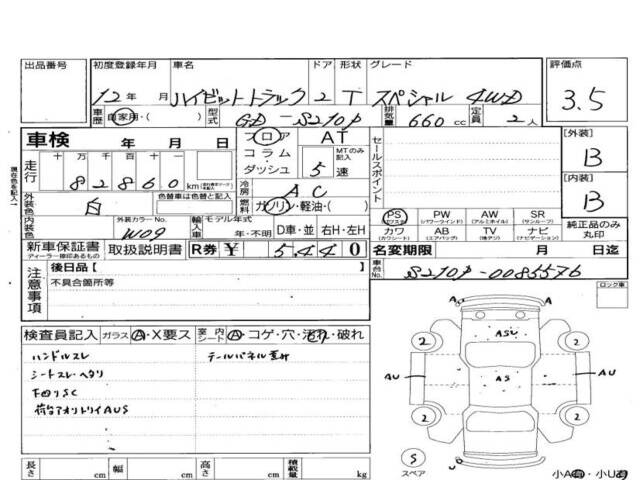 出品番号 初度登録年月 車名 ドア 形状 グレード 評価点
12年 月 ハイゼットトラック 2 T スペシャル 4WD 3.5
車歴 自家用・( ) 型式 GD-S210P 排気量 660cc 定員 2人
車検 年 月 日 フロア AT
コラム MTのみ記入
ダッシュ 5 速
走行 十 万 千 百 十
82860 km
冷房 AC
外装色 白 色替車は色替と記入
燃料 ガソリン・軽油・( )
内装色 外装カラーNo. W09 輸入車 モデル年式 年・不明 D車・並 右H・左H
新車保証書 取扱説明書 R券 ¥ 5,440
ディーラー捺印あるもの
セールスポイント
[外装]
B
[内装]
B
PS PW AW SR
(パワステ) (パワーウインド) (アルミホイル) (サンルーフ)
カワ AB TV ナビ
(カワシート) (エアバッグ) (地デジ) (ナビゲーション)
純正品のみ丸印
名変期限 月 日迄
車台No. S210P-0085576
現在色を記入
注意事項 後日品[ ]
不具合箇所等
ロック車
検査員記入 ガラス A・X要ス 室内シート A・コゲ・穴・汚れ・破れ
ハンドルスレ
シートスレ・ヘタリ
下回りSC
荷台アオリトリイAUS
テールパネル
A A
ASU
2 2
AU AS AU
2 2
S
スペア
U
小A有・小U有
長さ cm 幅 cm 高さ cm 積載量 kg